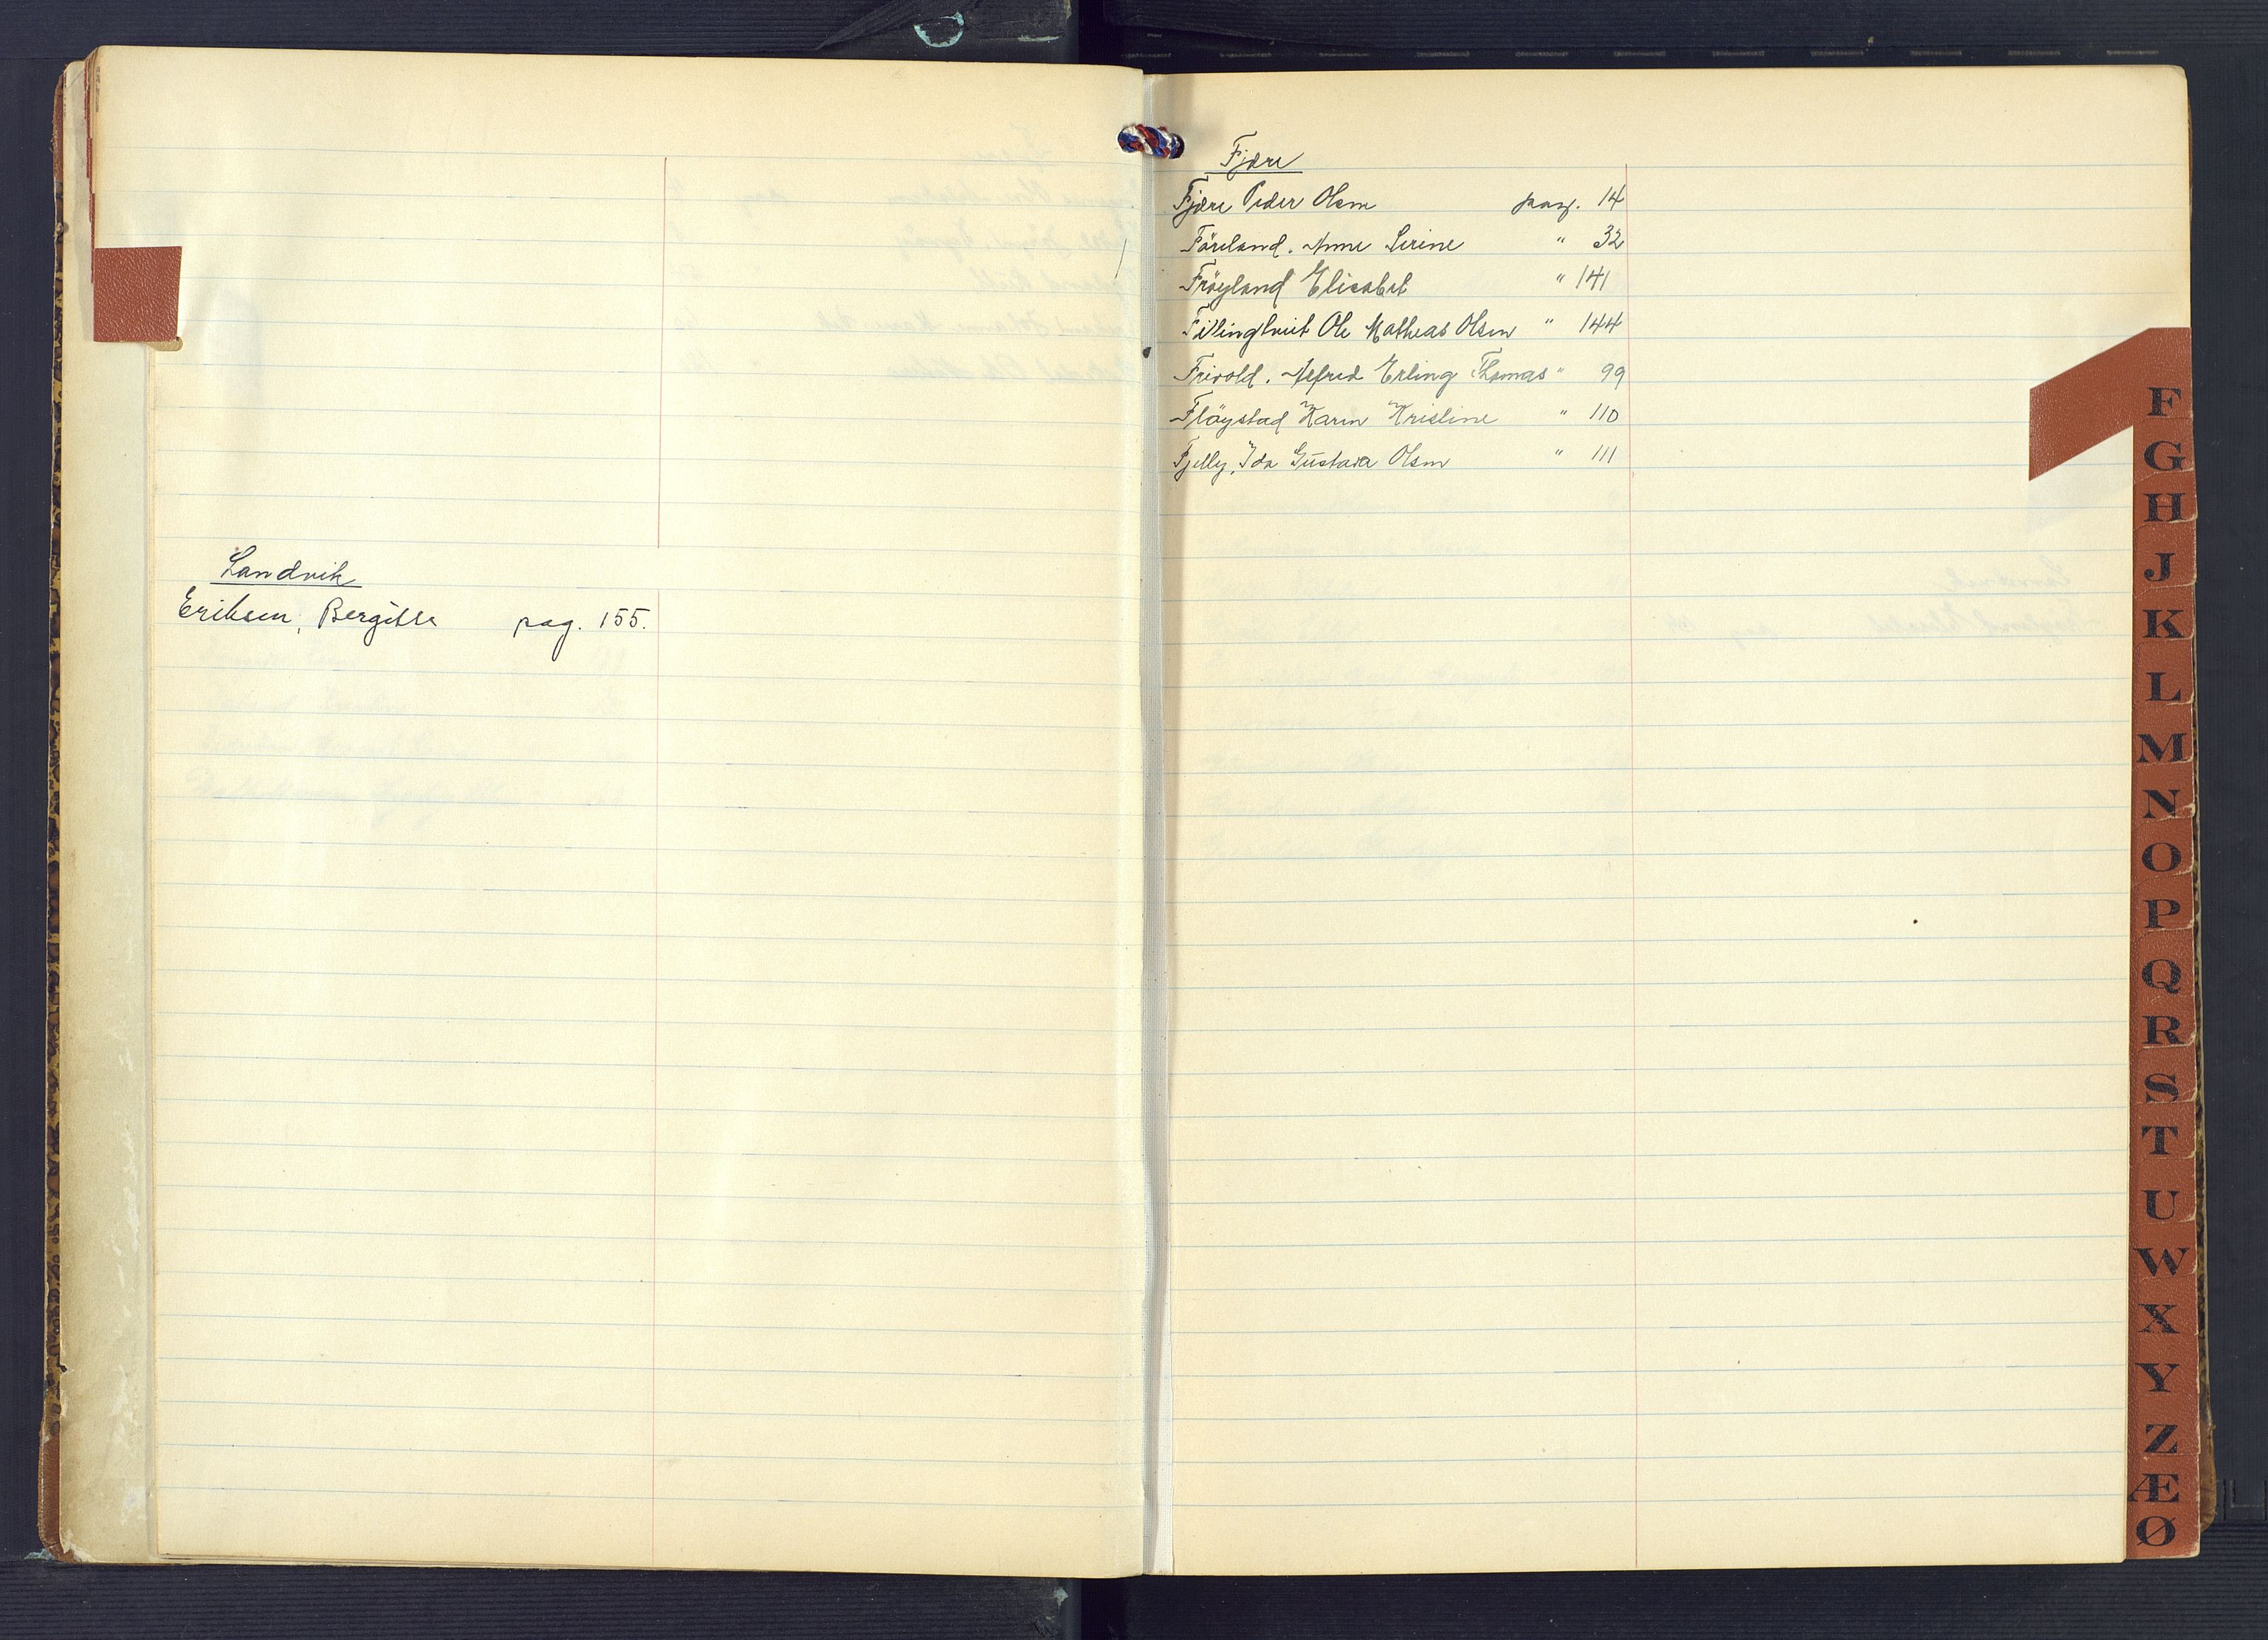 Landvik
Eriksen, Bergitte pag. 155.
Fjære
Fjære Peder Olsen pag. 14
Föreland. Anne Serine " 32
Fröyland Elisabet " 141
Fillingtveit Ole Mathias Olsen " 144
Frivold. Alfred Erling Thomas " 99
Flöystad Karen Kristine " 110
Fjelly, Ida Gustava Olsen " 111
F
G
H
J
K
L
M
N
O
P
Q
R
S
T
U
W
X
Y
Z
Æ
Ø